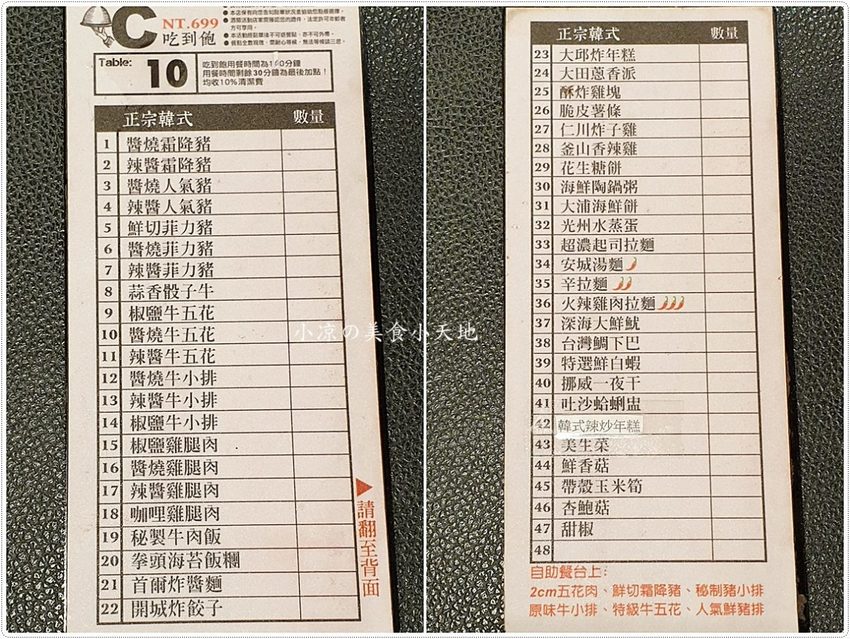 C NT.699
吃到飽
Table: 10
吃到飽用餐時間為100分鐘
用餐時間剩餘30分鐘為最後加點!
均收10%清潔費
正宗韓式 數量
1 醬燒霜降豬
2 辣醬霜降豬
3 醬燒人氣豬
4 辣醬人氣豬
5 鮮切菲力豬
6 醬燒菲力豬
7 辣醬菲力豬
8 蒜香骰子牛
9 椒鹽牛五花
10 醬燒牛五花
11 辣醬牛五花
12 醬燒牛小排
13 辣醬牛小排
14 椒鹽牛小排
15 椒鹽雞腿肉
16 醬燒雞腿肉
17 辣醬雞腿肉
18 咖哩雞腿肉
19 秘製牛肉飯
20 拳頭海苔飯糰
21 首爾炸醬麵
22 開城炸餃子
請翻至背面
正宗韓式 數量
23 大邱炸年糕
24 大田蔥香派
25 酥炸雞塊
26 脆皮薯條
27 仁川炸子雞
28 釜山香辣雞
29 花生糖餅
30 海鮮陶鍋粥
31 大浦海鮮餅
32 光州水蒸蛋
33 超濃起司拉麵
34 安城湯麵
35 辛拉麵
36 火辣雞肉拉麵
37 深海大鮮魷
38 台灣鯛下巴
39 特選鮮白蝦
40 挪威一夜干
41 吐沙蛤蜊盅
42 韓式辣炒年糕
43 美生菜
44 鮮香菇
45 帶殼玉米筍
46 杏鮑菇
47 甜椒
48
自助餐台上:
2cm五花肉、鮮切霜降豬、秘制豬小排
原味牛小排、特級牛五花、人氣鮮豬排
小凉の美食小天地